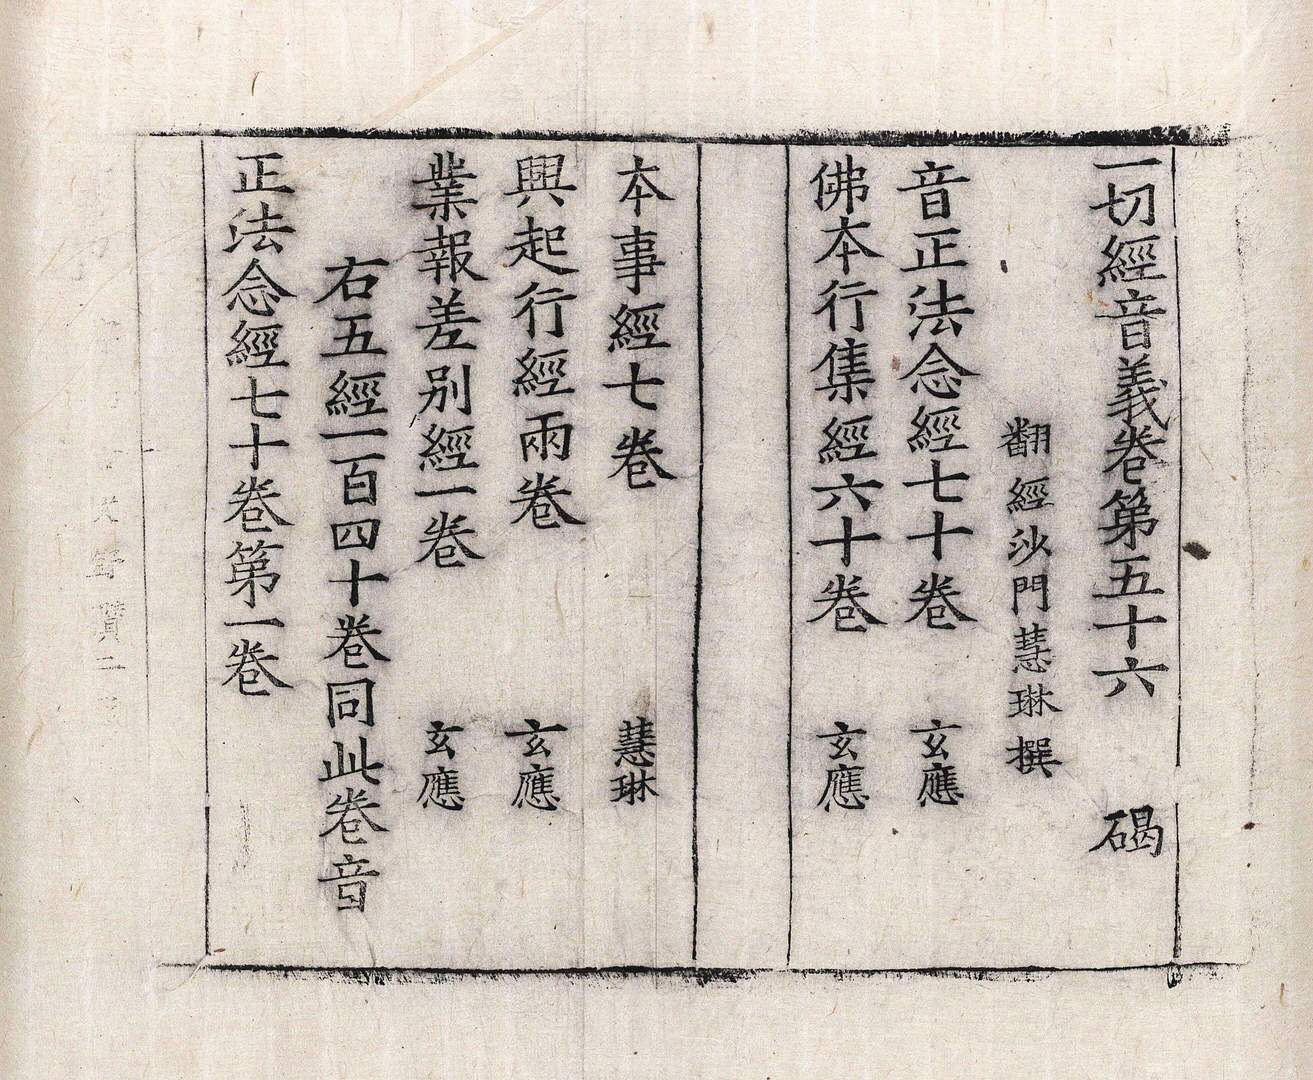 一切經音義卷第五十六 碣
翻經沙門慧琳撰
音正法念經七十卷 玄應
佛本行集經六十卷 玄應
本事經七卷 慧琳
興起行經兩卷 玄應
業報差別經一卷 玄應
右五經一百四十卷同此卷音
正法念經七十卷第一卷